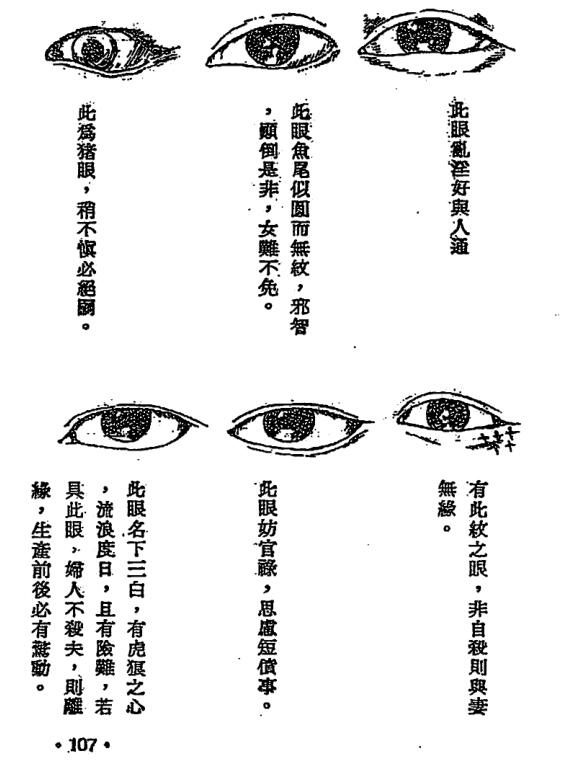 此眼亂淫好與人通
此眼魚尾似圓而無紋，邪智
，顚倒是非，女難不免。
此爲猪眼，稍不愼必絕嗣。
有此紋之眼，非自殺則與妻
無緣。
此眼妨官祿，思慮短僨事。
此眼名下三白，有虎狼之心
，流浪度日，且有險難，若
具此眼，婦人不殺夫，則離
緣，生產前後必有驚動。
•107•